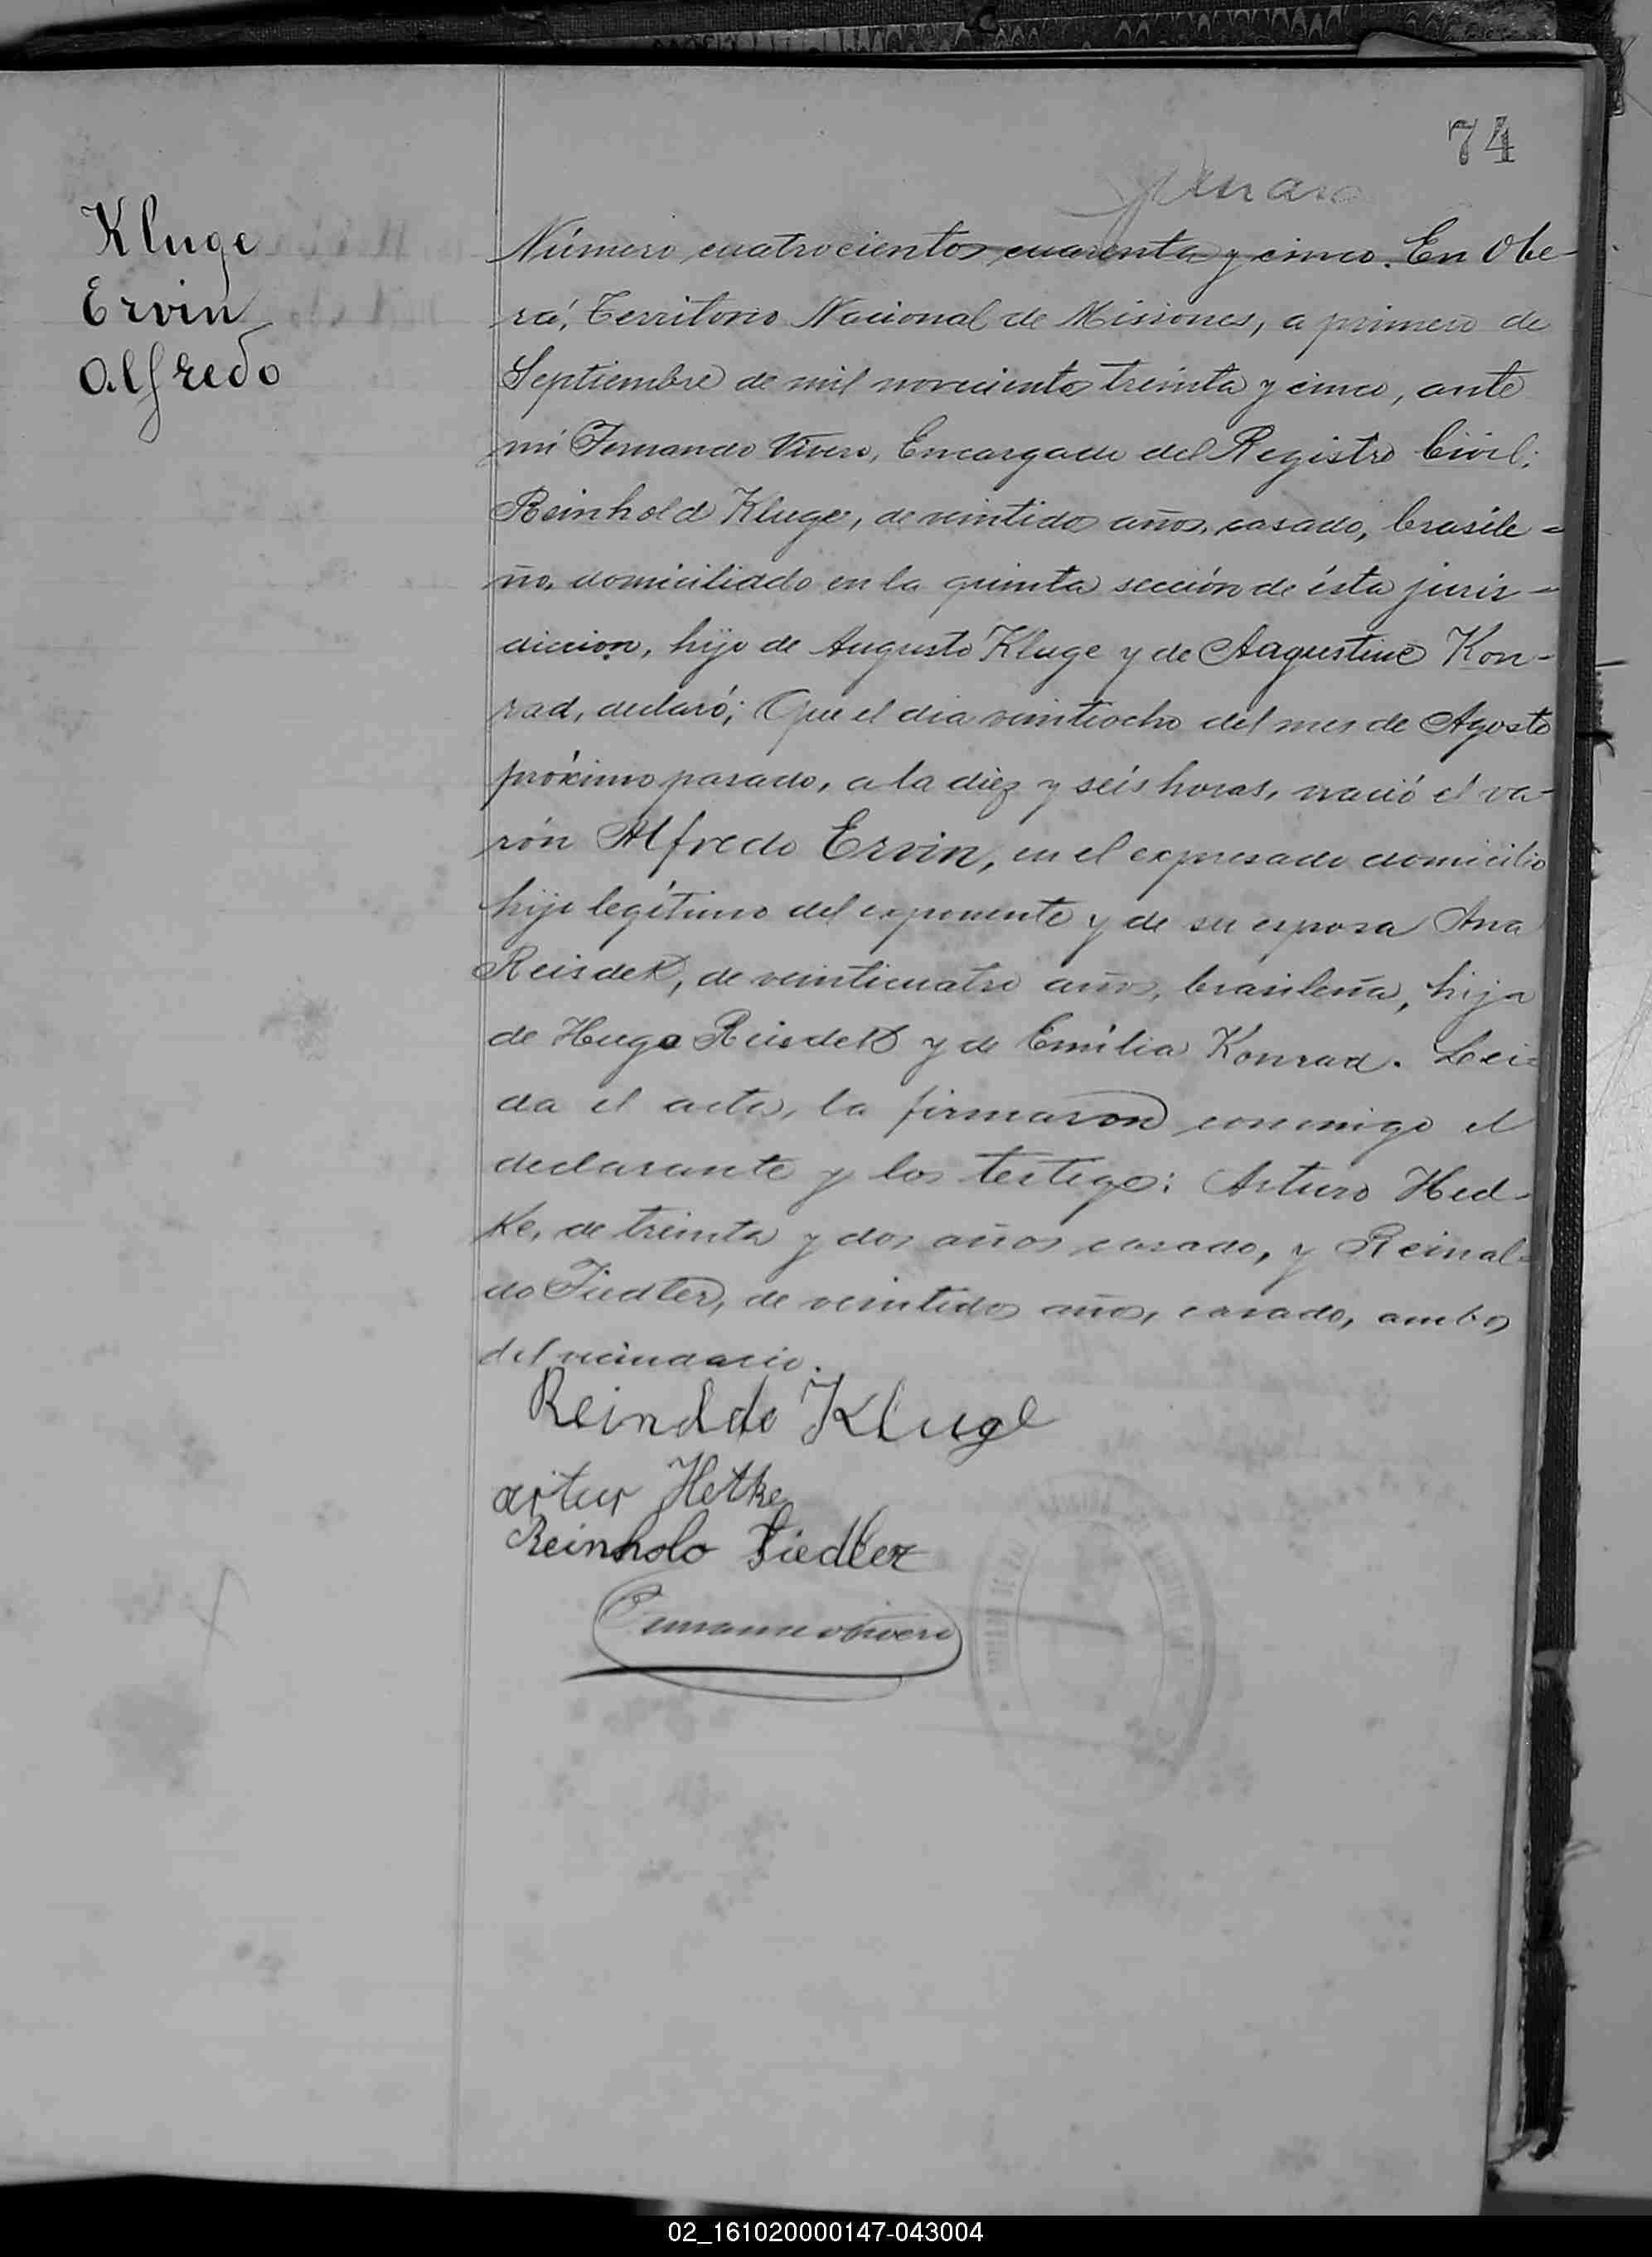 74
Kluge
Ervin
Alfredo
Número cuatrocientos cuarenta y cinco. En Obe-
rá, Territorio Nacional de Misiones, a primero de
Septiembre de mil novecientos treinta y cinco, ante
mi Fernando Vivero, Encargado del Registro Civil;
Reinhold Kluge, de veintidos años, casado, brasile-
ño, domiciliado en la quinta sección de ésta juris-
diccion, hijo de Augusto Kluge y de Aagustine Kon-
rad, declaró; Que el dia veintiocho del mes de Agosto
próximo pasado, a la diez y seis horas, nació el va-
rón Alfredo Ervin, en el expresado domicilio
hijo legítimo del exponente y de su esposa Ana
Reisdek, de veinticuatro años, brasileña, hija
de Hugo Reisdek y de Emilia Konrad. Leí-
da el acta, la firmaron conmigo el
declarante y los testigos: Arturo Hed-
ke, de treinta y dos años casado, y Reinal-
do Fiedler, de veintidos años, casado, ambos
del vecindario.
Reinaldo Kluge
artur Hetke
Reinholo Fiedler
Fernando Vivero
02_161020000147-043004